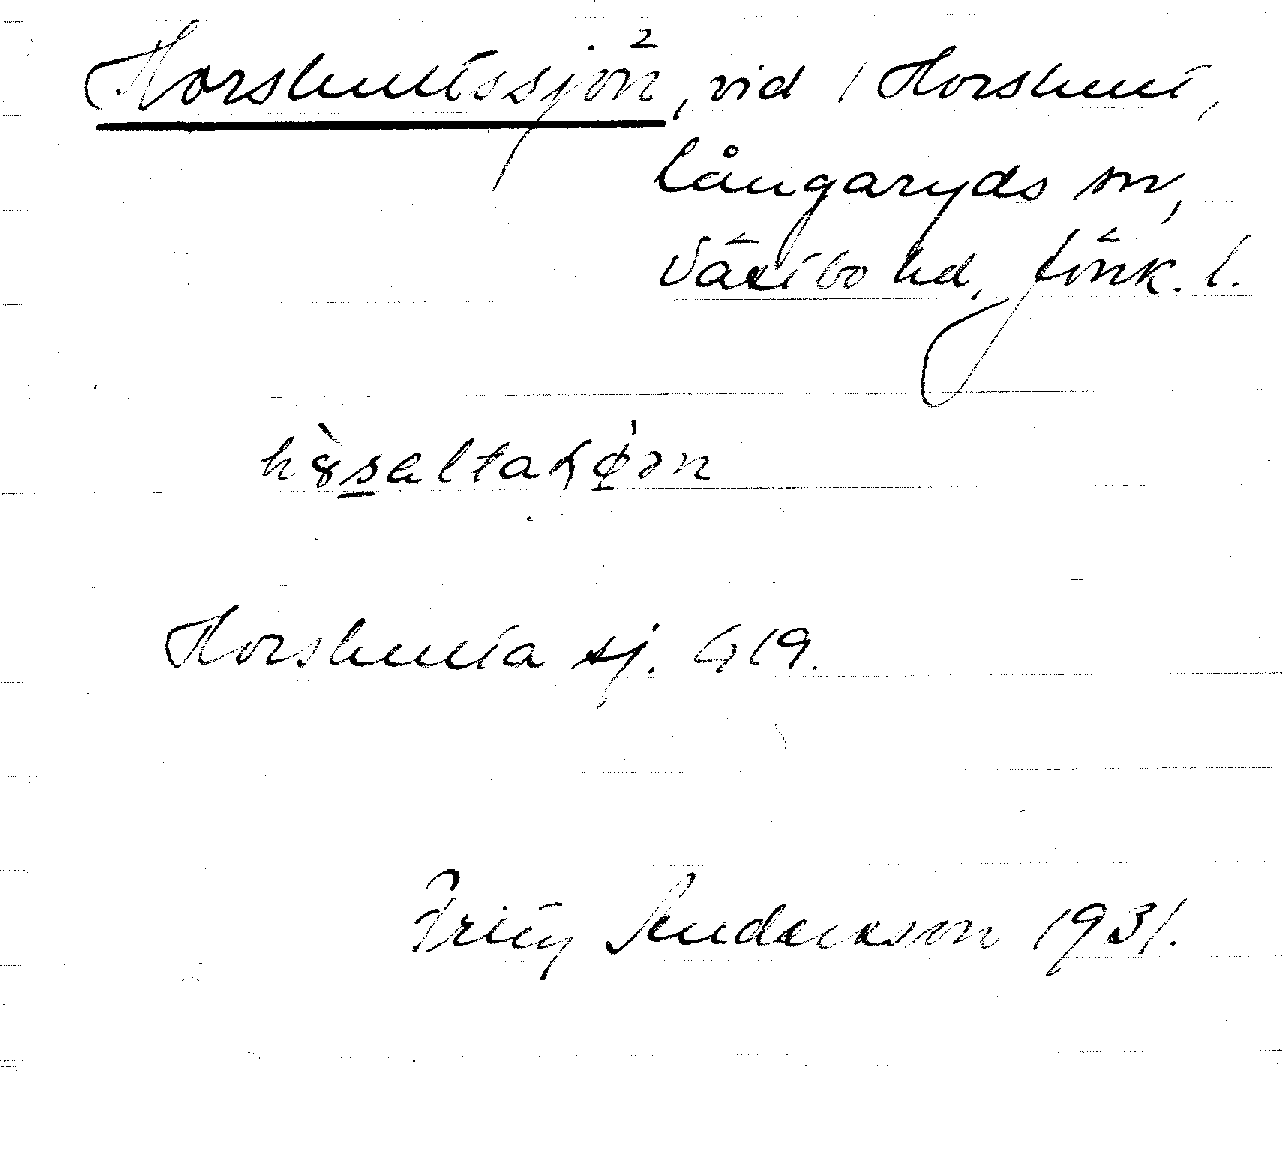 Horshultssjön, vid 1 Horshult,
Långaryds sn,
Västbo hd, Jönk. l.
Horshulta sj. G 19.
Fritz Andersson 1931.